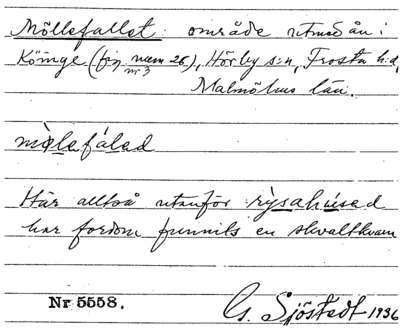 Möllefallet: område utmed ån i
Köinge (fig. num 26), Hörby s:n, Frosta h:d,
nr 3
Malmöhus län.
mòlefálad
Här alltså utanför rỳsahúsed
har fordom funnits en skvaltkvarn
Nr 5558.
G. Sjöstedt 1936